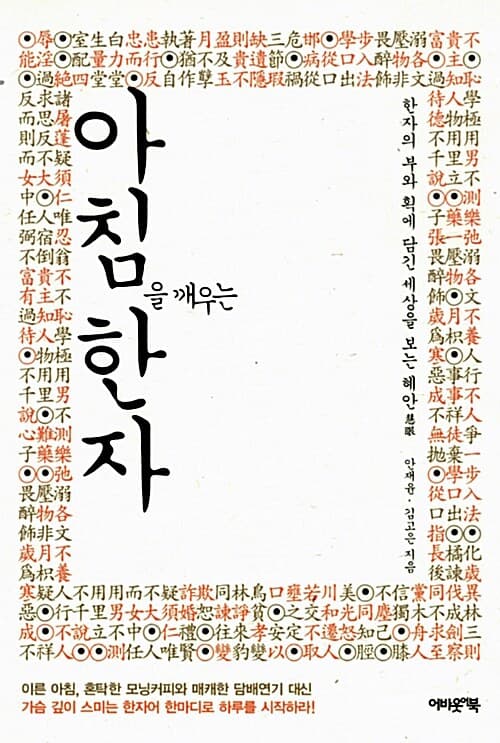 ◉辱◉室生白忠患執著月盈則缺三危邯◉學步畏壓溺富貴不
能淫◉配量力而行◉猶不及貴遺節◉病從口入醉物各◉主◉
◉過絶四堂堂◉反自作孽玉不隱瑕禍從口出法飾非文過知恥
反求諸
而思屠
則反蓬
而不疑
女大須
中◉仁
任人唯
弼宿忍
不倒翁
富貴不
有主不
過知恥
待人學
◉物極
不用用
千里男
說◉不
心難測
子藥樂
◉◉弛
畏壓溺
醉物各
飾非文
歲月不
爲枳養
아침
을 깨우는
한자
한자의 부와 획에 담긴 세상을 보는 혜안慧眼
안재윤·김고운 지음
待人學
德物極
不用用
千里男
說立不
◉◉測
子藥樂
張一弛
畏壓溺
醉物各
飾◉文
歲月不
爲枳養
寒◉人
惡事行
成事不
不祥人
無徒爭
抛棄一
◉學步
從口入
口出法
指◉◉
長橘化
後諫歲
寒疑人不用用而不疑詐欺同林鳥口壅若川美◉不信黨同伐異
惡◉行千里男女大須婚恕諫諍貧◉之交和光同塵獨木不成林
成◉不說立不中◉仁禮◉往來孝安定不遷怒知己◉舟求劍三
不祥人◉◉測任人唯賢◉變豹變以◉取人◉脛◉膝人至察則
이른 아침, 혼탁한 모닝커피와 매캐한 담배연기 대신
가슴 깊이 스미는 한자어 한마디로 하루를 시작하라!
어바웃어북